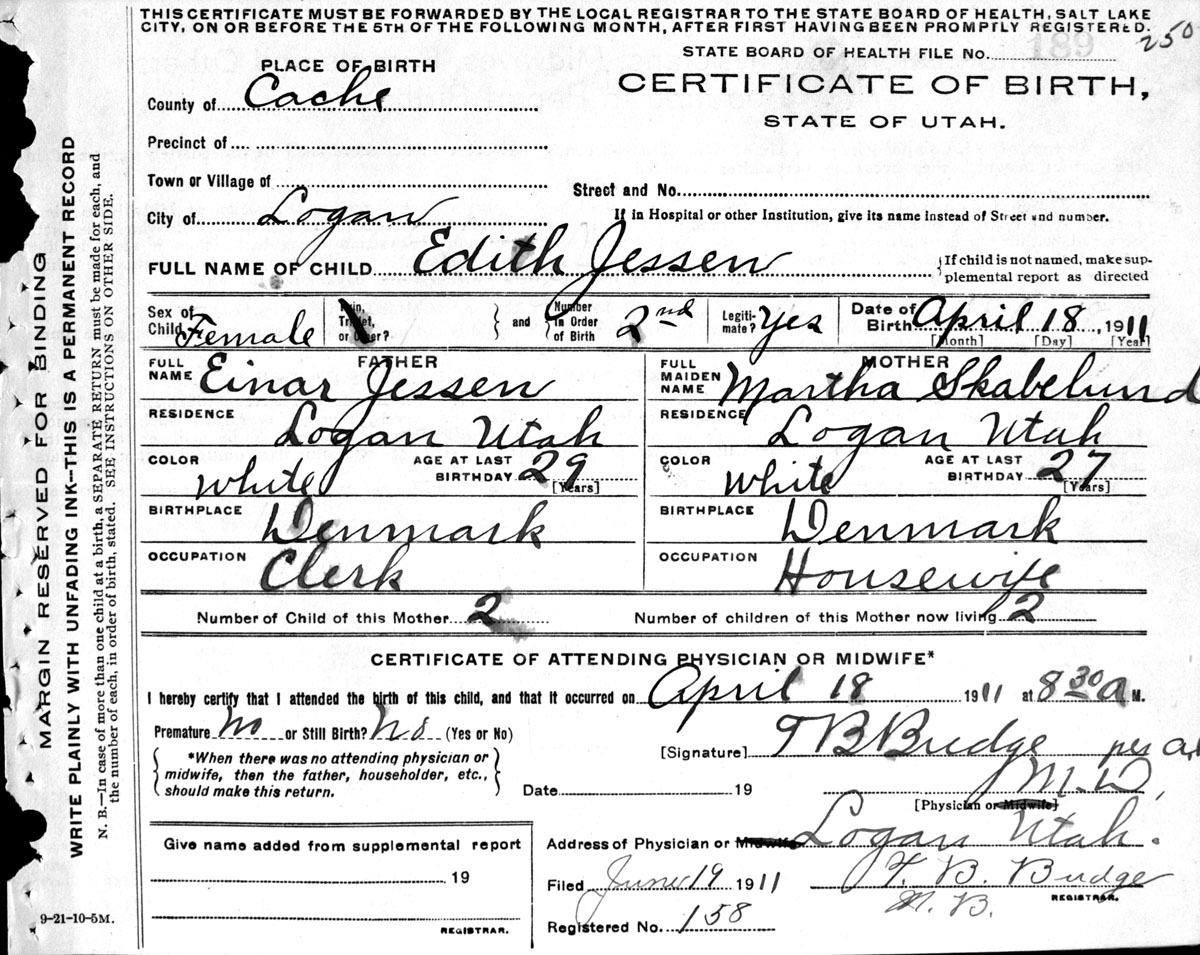 THIS CERTIFICATE MUST BE FORWARDED BY THE LOCAL REGISTRAR TO THE STATE BOARD OF HEALTH, SALT LAKE
CITY, ON OR BEFORE THE 5TH OF THE FOLLOWING MONTH, AFTER FIRST HAVING BEEN PROMPTLY REGISTERED.
250
STATE BOARD OF HEALTH FILE No. 189
PLACE OF BIRTH
CERTIFICATE OF BIRTH,
County of Cache
STATE OF UTAH.
Precinct of
Town or Village of
Street and No.
City of Logan
If in Hospital or other Institution, give its name instead of Street and number.
FULL NAME OF CHILD Edith Jessen
{If child is not named, make sup-
plemental report as directed
Sex of Child Female
Twin, Triplet, or Other?
} and {
Number In Order of Birth 2nd
Legiti-mate? Yes
Date of Birth April 18, 1911
[Month] [Day] [Year]
FATHER
FULL NAME Einar Jessen
MOTHER
FULL MAIDEN NAME Martha Skabelund
RESIDENCE Logan Utah
RESIDENCE Logan Utah
COLOR White AGE AT LAST BIRTHDAY 29 [Years]
COLOR White AGE AT LAST BIRTHDAY 27 [Years]
BIRTHPLACE Denmark
BIRTHPLACE Denmark
OCCUPATION Clerk
OCCUPATION Housewife
Number of Child of this Mother 2 Number of children of this Mother now living 2
CERTIFICATE OF ATTENDING PHYSICIAN OR MIDWIFE*
I hereby certify that I attended the birth of this child, and that it occurred on April 18 1911 at 8 30 a M.
Premature No or Still Birth? No (Yes or No)
[Signature] T B Budge per
M.D.
{ *When there was no attending physician or
midwife, then the father, householder, etc.,
should make this return. }
Date 19
[Physician or Midwife]
Give name added from supplemental report
19
REGISTRAR.
Address of Physician or Midwife Logan Utah.
Filed June 19 1911
T. B. Budge
M. B.
REGISTRAR.
Registered No. 158
9-21-10-5M.
MARGIN RESERVED FOR BINDING
WRITE PLAINLY WITH UNFADING INK—THIS IS A PERMANENT RECORD
N. B.—In case of more than one child at a birth, a SEPARATE RETURN must be made for each, and
the number of each, in order of birth, stated. SEE INSTRUCTIONS ON OTHER SIDE.